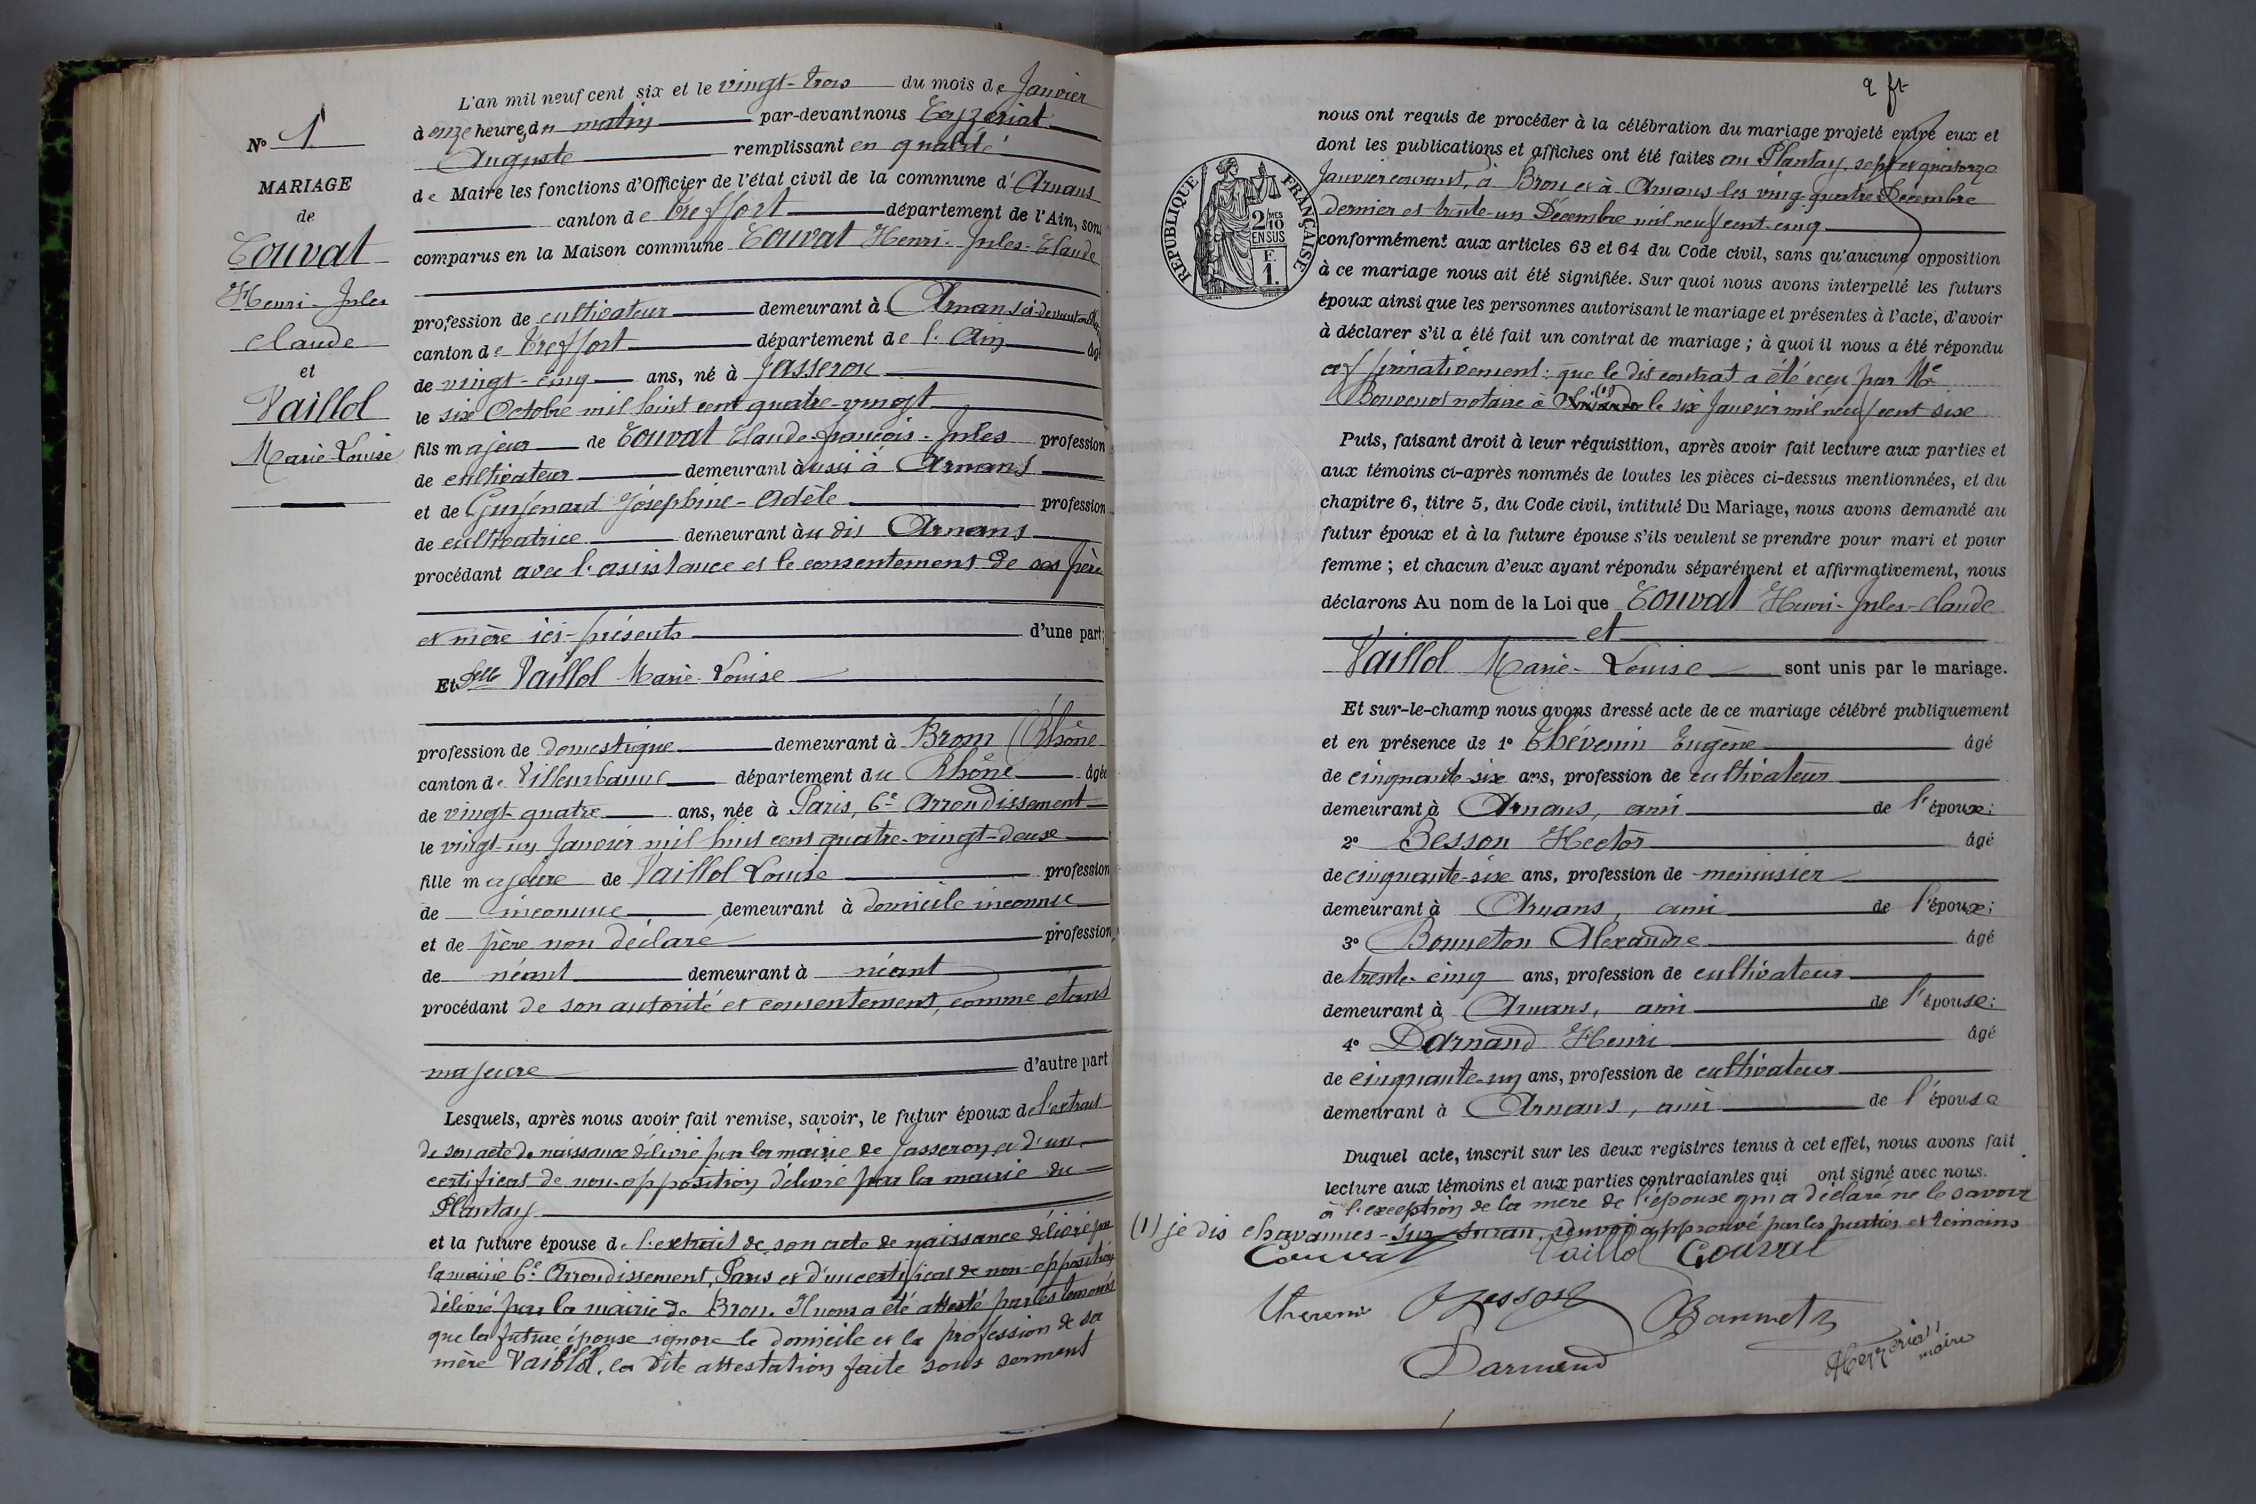 L'an mil neuf cent six et le vingt-trois du mois de Janvier
à onze heures du matin par-devant nous Tayzériat
Auguste remplissant en qualité
de Maire les fonctions d'Officier de l'état civil de la commune d'Arnans
canton de Treffort département de l'Ain, sont
comparus en la Maison commune Couvat Henri-Jules-Claude
N° 1
MARIAGE
de
Couvat
Henri-Jules
Claude
et
Vaillol
Marie-Louise
profession de cultivateur demeurant à Arnans ci-devant au
canton de Treffort département de l'Ain âgé
de vingt-cinq ans, né à Jasseron
le six Octobre mil huit cent quatre-vingt
fils majeur de Couvat Claude-françois-Jules profession
de cultivateur demeurant à Arnans
et de Guyénard Joséphine-Adèle profession
de cultivatrice demeurant au dit Arnans
procédant avec l'assistance et le consentement de ses père
et mère ici-présents d'une part;
Et Delle Vaillol Marie-Louise
profession de domestique demeurant à Bron (Rhône
canton de Villeurbanne département du Rhône âgée
de vingt-quatre ans, née à Paris, 6e Arrondissement
le vingt-un Janvier mil huit cent quatre-vingt-deux
fille majeure de Vaillol Louise profession
de inconnue demeurant à domicile inconnu
et de père non déclaré profession
de néant demeurant à néant
procédant de son autorité et consentement, comme étant
majeure d'autre part
Lesquels, après nous avoir fait remise, savoir, le futur époux de l'extrait
de son acte de naissance délivré par la mairie de Jasseron et d'un
certificat de non-opposition délivré par la mairie du
Plantay
et la future épouse de l'extrait de son acte de naissance délivré par
la mairie 6e Arrondissement, Paris et d'un certificat de non-opposition
délivré par la mairie de Bron. Il nous a été attesté par les témoins
que la future épouse ignore le domicile et la profession de sa
mère Vaillol, la dite attestation faite sous serment
2 ft
nous ont requis de procéder à la célébration du mariage projeté entre eux et
dont les publications et affiches ont été faites au Plantay, sept et quatorze
Janvier courant, à Bron et à Arnans les vingt-quatre Décembre
dernier et trente-un Décembre mil neuf cent cinq
RÉPUBLIQUE FRANÇAISE
2/10 MES
EN SUS
F.
1.
conformément aux articles 63 et 64 du Code civil, sans qu'aucune opposition
à ce mariage nous ait été signifiée. Sur quoi nous avons interpellé les futurs
époux ainsi que les personnes autorisant le mariage et présentes à l'acte, d'avoir
à déclarer s'il a été fait un contrat de mariage ; à quoi il nous a été répondu
affirmativement : que le dit contrat a été reçu par Me
Bouvenot notaire à (1) le six Janvier mil neuf cent six
Puis, faisant droit à leur réquisition, après avoir fait lecture aux parties et
aux témoins ci-après nommés de toutes les pièces ci-dessus mentionnées, et du
chapitre 6, titre 5, du Code civil, intitulé Du Mariage, nous avons demandé au
futur époux et à la future épouse s'ils veulent se prendre pour mari et pour
femme ; et chacun d'eux ayant répondu séparément et affirmativement, nous
déclarons Au nom de la Loi que Couvat Henri-Jules-Claude
et
Vaillol Marie-Louise sont unis par le mariage.
Et sur-le-champ nous avons dressé acte de ce mariage célébré publiquement
et en présence de 1° Thévenin Eugène âgé
de cinquante-six ans, profession de cultivateur
demeurant à Arnans, ami de l'époux;
2° Besson Hector âgé
de cinquante-six ans, profession de menuisier
demeurant à Arnans, ami de l'époux;
3° Bonneton Alexandre âgé
de trente-cinq ans, profession de cultivateur
demeurant à Arnans, ami de l'épouse;
4° Darnand Henri âgé
de cinquante-un ans, profession de cultivateur
demeurant à Arnans, ami de l'épouse
Duquel acte, inscrit sur les deux registres tenus à cet effet, nous avons fait
lecture aux témoins et aux parties contractantes qui ont signé avec nous.
à l'exception de la mère de l'épouse qui a déclaré ne le savoir
(1) je dis chavannes-sur-suran, renvoi approuvé par les parties et témoins
Couvat Vaillol Couvat
Thevenin Besson Bonneton
Darnand Tayzériat
maire